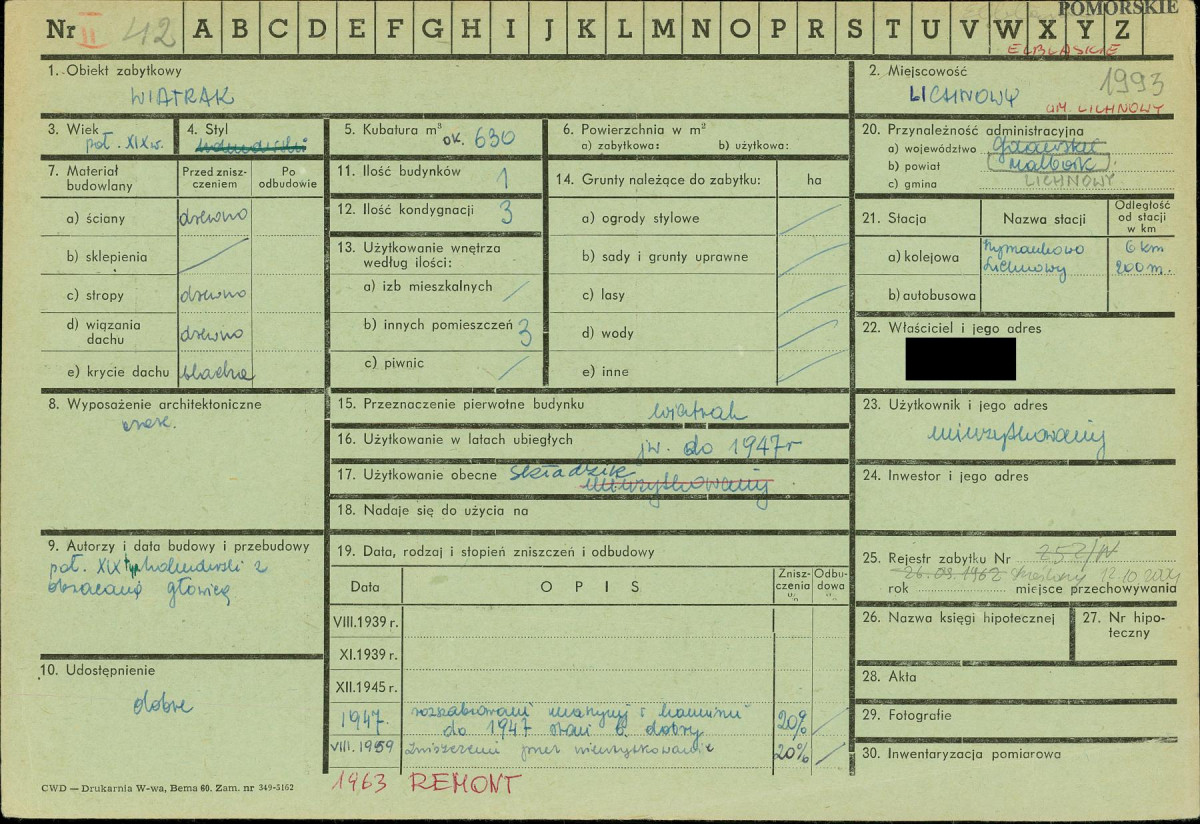 POMORSKIE
Nr II 42 A B C D E F G H I J K L M N O P R S T U V W X Y Z
ELBLĄSKIE
1. Obiekt zabytkowy
WIATRAK
2. Miejscowość
1993
LICHNOWY
GM. LICHNOWY
3. Wiek
poł. XIX w.
4. Styl
holenderski
5. Kubatura m³ ok. 630
6. Powierzchnia w m²
a) zabytkowa: b) użytkowa:
7. Materiał budowlany
Przed zniszczeniem
Po odbudowie
a) ściany drewno
b) sklepienia
c) stropy drewno
d) wiązania dachu drewno
e) krycie dachu blacha
11. Ilość budynków 1
12. Ilość kondygnacji 3
13. Użytkowanie wnętrza
według ilości:
a) izb mieszkalnych
b) innych pomieszczeń 3
c) piwnic
14. Grunty należące do zabytku: ha
a) ogrody stylowe
b) sady i grunty uprawne
c) lasy
d) wody
e) inne
20. Przynależność administracyjna
a) województwo Gdańskie
b) powiat Malbork
c) gmina LICHNOWY
21. Stacja
Nazwa stacji
Odległość
od stacji
w km
a) kolejowa Szymankowo 6 km
Lichnowy 200 m.
b) autobusowa
22. Właściciel i jego adres
8. Wyposażenie architektoniczne
15. Przeznaczenie pierwotne budynku wiatrak
16. Użytkowanie w latach ubiegłych jw. do 1947 r
17. Użytkowanie obecne składzik
nieużytkowany
18. Nadaje się do użycia na
23. Użytkownik i jego adres
nieużytkowany
24. Inwestor i jego adres
9. Autorzy i data budowy i przebudowy
poł. XIX typ holenderski z
obracaną głowicą
10. Udostępnienie
dobre
19. Data, rodzaj i stopień zniszczeń i odbudowy
Data
OPIS
Zniszczenia
w %
Odbudowa
w %
VIII.1939 r.
XI.1939 r.
XII.1945 r.
1947. rozszabrowani maszyny i kamieni
do 1947 stan b. dobry 20%
VIII.1959 Zniszczenia przez nieużytkowanie 20%
1963 REMONT
25. Rejestr zabytku Nr 252/N
26.09.1962 skreślony 12.10 2004
rok miejsce przechowywania
26. Nazwa księgi hipotecznej
27. Nr hipoteczny
28. Akta
29. Fotografie
30. Inwentaryzacja pomiarowa
CWD — Drukarnia W-wa, Bema 60. Zam. nr 349-5162